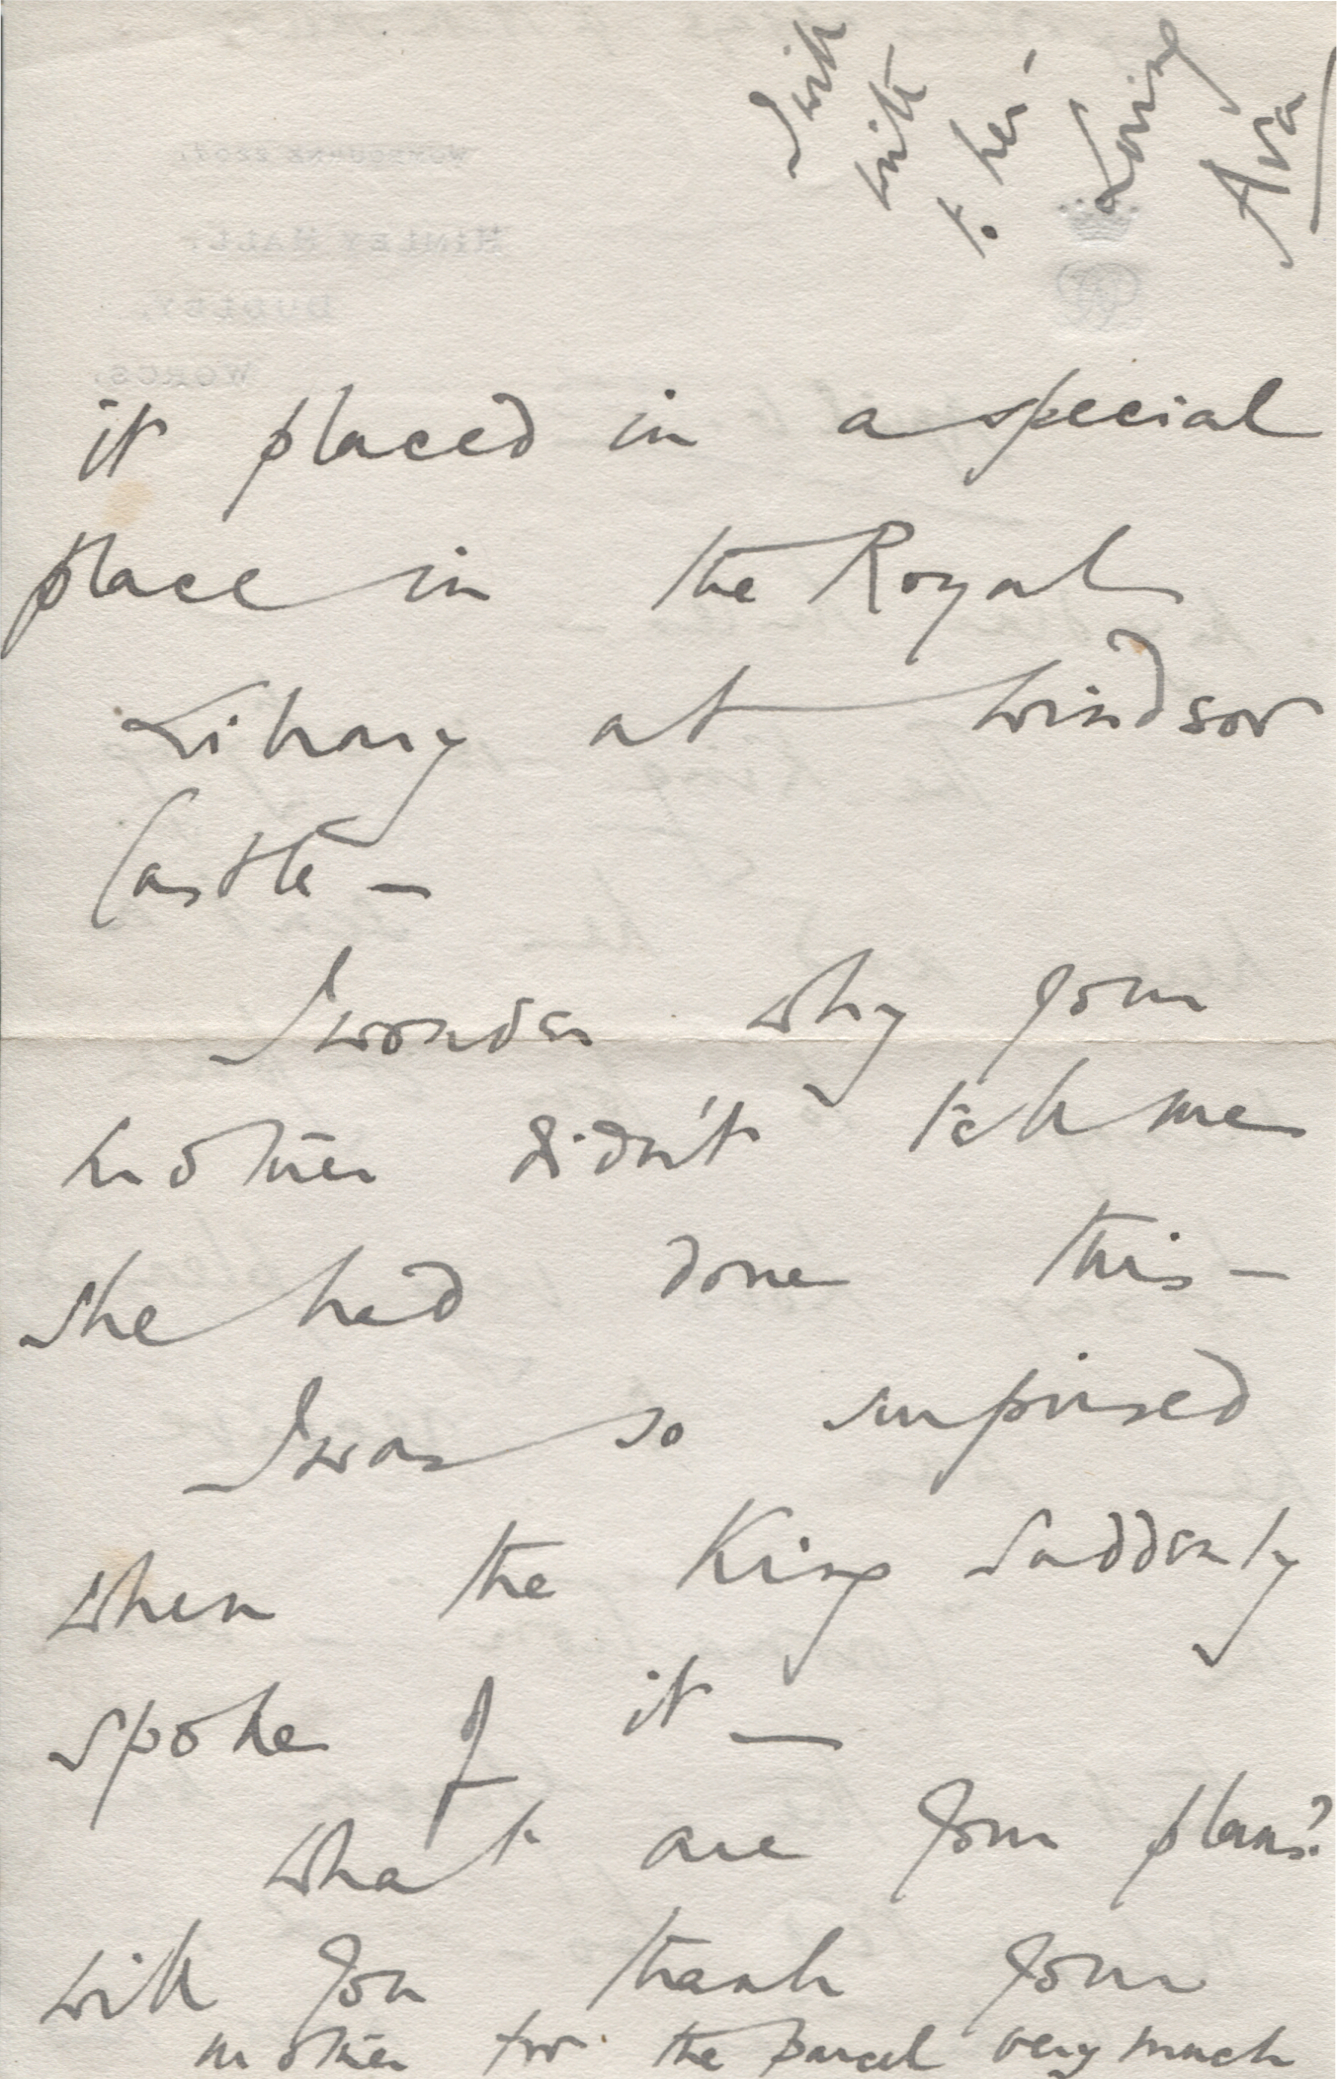 it placed in a special
place in the Royal
Library at Windsor
Castle —
I wonder why your
mother didn't tell me
she had done this —
I was so surprised
when the King suddenly
spoke of it —
What are your plans?
Will you thank your
mother for the parcel very much
I will
write
to her –
Loving
Ava
WOMBOURNE 2207.
HIMLEY HALL
DUDLEY.
WORCS.